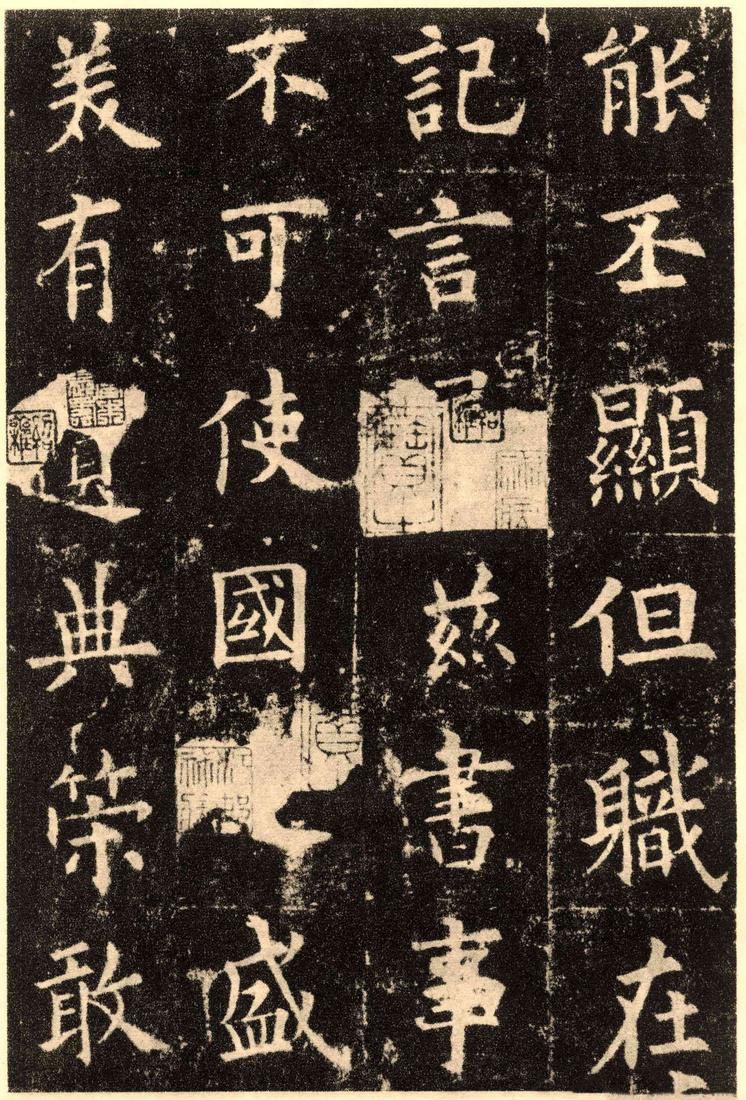 能丕顯但職在
記言茲書事
不可使國之盛
美有遺典策敢